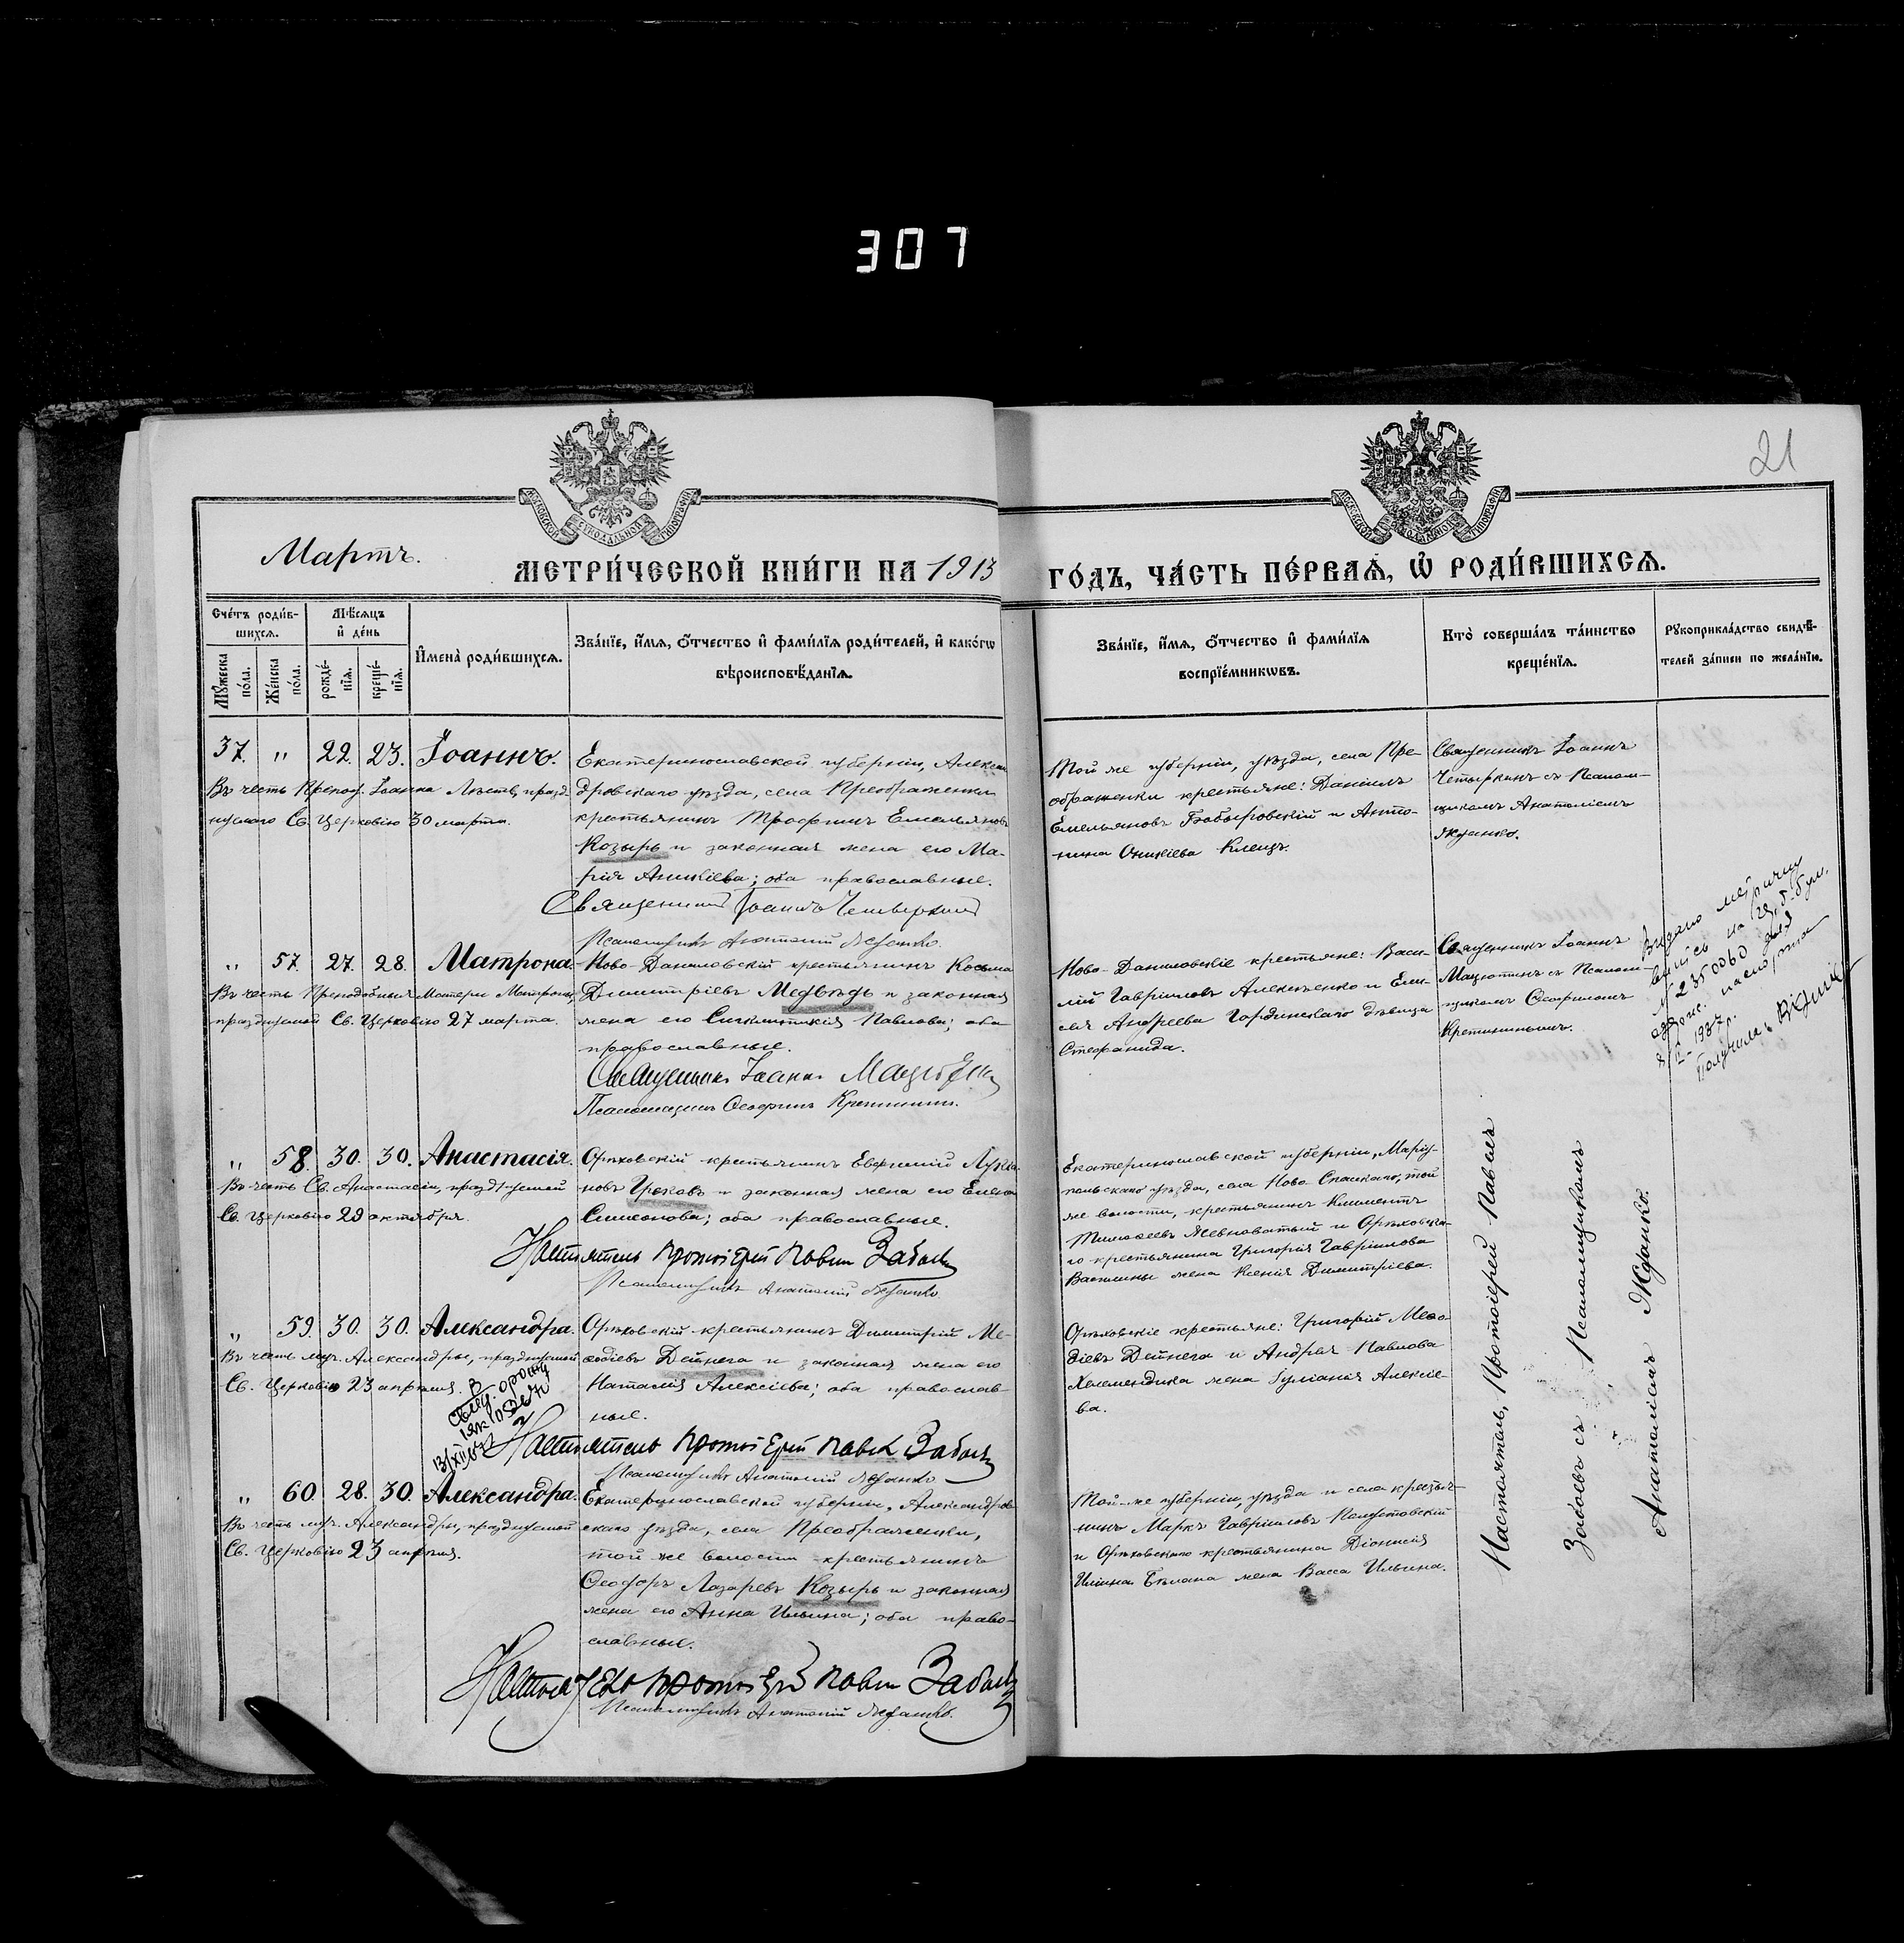 307
21
Мартъ.
МЕТРИ́ЧЕСКОЙ КНИ́ГИ НА 1913
ГО́ДЪ, ЧА́СТЬ ПЕ́РВАѦ, Ѡ҆ РОДИ́ВШИХСѦ.
Сче́тъ роди́в-
шихсѧ.
Мѣ́сѧцъ
и҆ де́нь
И҆мена̀ роди́вшихсѧ.
Зва́нїе, и҆́мѧ, ѻ҆́тчество и҆ фами́лїѧ роди́телей, и҆ како́гѡ
вѣроисповѣ́данїѧ.
Мꙋ́жеска по́ла.
Же́нска по́ла.
рожде́-
нїѧ.
креще́-
нїѧ.
Зва́нїе, и҆́мѧ, ѻ҆́тчество и҆ фами́лїѧ
воспрїе́мникѡвъ.
Кто̀ соверша́лъ та́инство
креще́нїѧ.
Рꙋкоприкла́дство свидѣ́-
телей за́писи по жела́нїю.
37. " 22. 23. Іоаннъ.
Въ честь Препод. Іоанна Лѣств., празд-
нуемаго Св. Церковію 30 марта.
Екатеринославской губерніи, Алексан
дровскаго уѣзда, села Преображенки
крестьянинъ Трофимъ Емельяновъ
Козырь и законная жена его Ма-
рія Аникіева; оба православные.
Священникъ Іоаннъ Четыркинъ
Псаломщикъ Анатолій Жданко.
Той же губерніи, уѣзда, села Пре-
ображенки крестьяне: Даніилъ
Емельяновъ Бобыровскій и Анто-
нина Оникіева Клецъ.
Священникъ Іоаннъ
Четыркинъ съ Псалом-
щикомъ Анатоліемъ
Жданко.
" 57. 27. 28. Матрона.
Въ честь Преподобныя Матери Матроны,
празднуемой Св. Церковію 27 марта.
Ново-Даниловскій крестьянинъ Косьма
Димитріевъ Медвѣдь и законная
жена его Синклитикія Павлова; оба
православные.
Священникъ Іоаннъ
Псаломщикъ Ѳеофилъ Кретининъ.
Ново-Даниловскіе крестьяне: Васи-
лій Гавріиловъ Алексѣенко и
Андреева Гординскаго дѣвица
Стефанида.
Священникъ Іоаннъ
съ Псалом-
щикомъ Ѳеофиломъ
Кретининымъ.
Видано метричну
випись на
№ 2350060 для
паспорта
1937 р.
Получила:
" 58. 30. 30. Анастасія.
Въ честь Св. Анастасіи, празднуемой
Св. Церковію 29 октября.
Орѣховскій крестьянинъ Евфимій Лукіа-
новъ и законная жена его Елена
Симеонова; оба православные.
Настоятель Протоіерей Павелъ Забаев
Псаломщикъ Анатолій Жданко.
Екатеринославской губерніи, Маріу-
польскаго уѣзда, села Ново-Спасскаго, той
же волости, крестьянинъ Климентъ
Тимоѳеевъ и Орѣховска-
го крестьянина Григорія Гавріилова
жена Ксенія Димитріева.
" 59. 30. 30. Александра.
Въ честь муч. Александры, празднуемой
Св. Церковію 23 апрѣля.
Орѣховскій крестьянинъ Димитрій Ме-
ѳодіевъ Дейнега и законная жена его
Наталія Алексіева; оба православ-
ные.
Настоятель Протоіерей Павелъ
Псаломщикъ Анатолій Жданко
Орѣховскіе крестьяне: Григорій Меѳо-
діевъ Дейнега и Андрея Павлова
жена Іуліанія Алексіе-
ва.
" 60. 28. 30. Александра.
Въ честь муч. Александры, празднуемой
Св. Церковію 23 апрѣля.
Екатеринославской губерніи, Александров-
скаго уѣзда, села Преображенки,
той же волости крестьянинъ
Ѳеодоръ Лазаревъ Козырь и законная
жена его Анна Ильина; оба право-
славные.
Настоятель Протоіерей Павелъ
Псаломщикъ Анатолій Жданко.
Той-же губерніи, уѣзда и села крестья-
нинъ Маркъ Гавріиловъ
и Орѣховскаго крестьянина Діонисія
жена Васса Ильина.
Настоятель, Протоіерей Павелъ
съ Псаломщикомъ
Анатоліемъ Жданко.